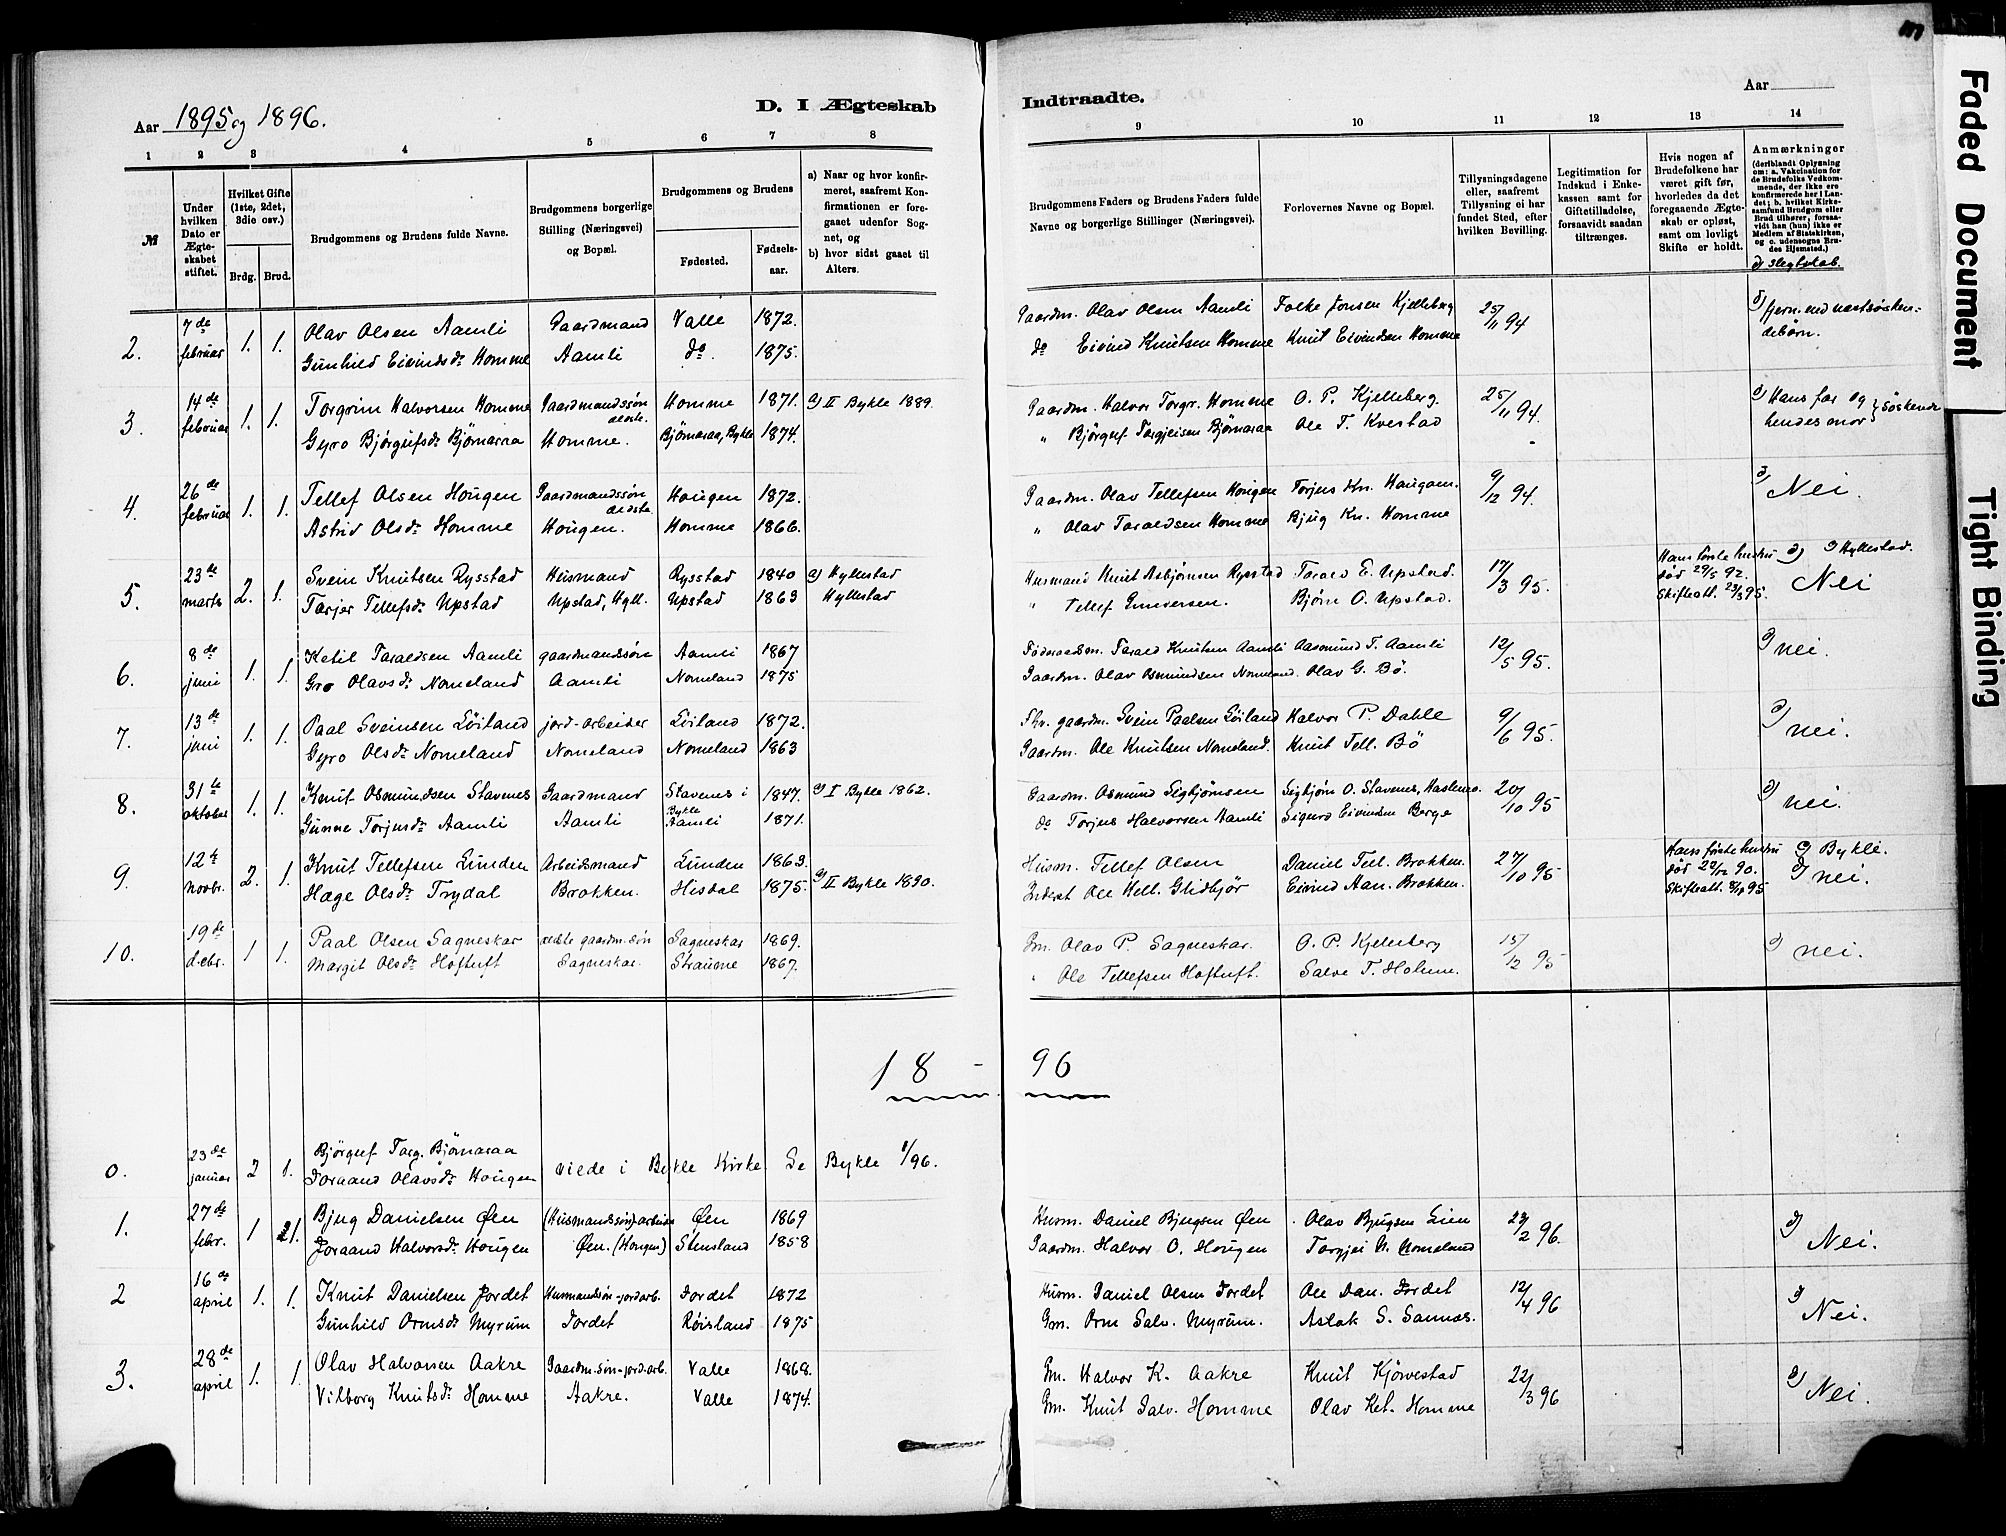 Aar 1895 og 1896.
D. I Ægteskab
Indtraadte.
Aar
1 2 3 4 5 6 7 8 9 10 11 12 13 14
№
Under hvilken Dato er Ægteskabet stiftet.
Hvilket Gifte (1ste, 2det, 3die osv.)
Brdg. Brud.
Brudgommens og Brudens fulde Navne.
Brudgommens borgerlige Stilling (Næringsvei) og Bopæl.
Brudgommens og Brudens
Fødested.
Fødselsaar.
a) Naar og hvor konfirmeret, saafremt Konfirmationen er foregaaet udenfor Sognet, og
b) hvor sidst gaaet til Alters.
Brudgommens Faders og Brudens Faders fulde Navne og borgerlige Stillinger (Næringsvei).
Forlovernes Navne og Bopæl.
Tillysningsdagene eller, saafremt Tillysning ei har fundet Sted, efter hvilken Bevilling.
Legitimation for Indskud i Enkekassen samt for Giftetilladelse, forsaavidt saadan tiltrænges.
Hvis nogen af Brudefolkene har været gift før, hvorledes da det foregaaende Ægteskab er opløst, samt om lovligt Skifte er holdt.
Anmærkninger (deriblandt Oplysning om: a. Vakcination for de Brudefolks Vedkommende, der ikke ere konfirmerede her i Landet; b. hvilket Kirkesamfund Brudgom eller Brud tilhører, forsaavidt han (hun) ikke er Medlem af Statskirken, og c. udensogns Brudes Hjemsted.)
d) slegtskab.
2. 7de februar 1. 1. Olav Olsen Aamli Gaardmand Valle 1872. Gaardm. Olav Olsen Aamli Folke Jonsen Kjelleberg 25/11 94 d) fjern. end næstsøsken-
Gunhild Eivindsdr Homme Aamli do. 1875. do Eivind Knutsen Homme Knut Eivindsen Homme debørn.
3. 14de februar 1. 1. Torgrim Halvorsen Homme Gaardmandssøn ældste. Homme 1871. a) II Bykle 1889. Gaardm. Halvor Torgr. Homme O. P. Kjelleberg. 25/11 94. d) Hans far og } Søskende
Gyro Bjørgufsdr Bjørnaraa Homme. Bjørnaraa, Bykle 1874. " Bjørguf Torgjeisen Bjørnaraa Ole T. Kvestad hendes mor
4. 26de februar 1. 1. Tellef Olsen Hougen Gaardmandssøn ældste Hougen 1872. Gaardm. Olav Tellefsen Hougen Torjus Kn. Haugom. 9/12 94. d) Nei.
Astrid Olsdr Homme Hougen. Homme 1866. " Olav Taraldsen Homme Bjug Kn. Homme
5. 23de marts 2. 1. Svein Knutsen Rysstad Husmand Rysstad 1840 a) Hyllestad Husmand Knut Asbjørnsen Rysstad Tarald E. Upstad. 17/3 95. Hans første hustru død 29/5 92. Skifteatt. 23/3 95. d) c) Hyllestad.
Torjer Tellefsdr Upstad Upstad, Hyll. Upstad 1863 Hyllestad " Tellef Gunversen. Bjørn O. Upstad. Nei
6. 8de juni 1. 1. Ketil Taraldsen Aamli gaardmandssøn Aamli 1867 Føderaadsm. Tarald Knutsen Aamli Aasmund T. Aamli 12/5 95. d) nei.
Gro Olavsdr Nomeland Aamli Nomeland 1875 Gaardm. Olav Osmundsen Nomeland. Olav G. Bø.
7. 13de juni 1. 1. Paal Sveinsen Løiland jord-arbeider Løiland 1872. gaardm. Svein Paalsen Løiland Halvor P. Dahle 9/6 95. d) nei.
Gyro Olsdr Nomeland Nomeland Nomeland 1863 Gaardm. Ole Knutsen Nomeland. Knut Tell. Bø
8. 31te oktober 1. 1. Knut Osmundsen Stavenes Gaardmand Stavenes i Bykle 1847. a) I Bykle 1862. Gaardm. Osmund Sigbjørnsen Sigbjørn O. Stavenes, 20/10 95 d) nei.
Gunne Torjusdr Aamli Aamli Aamli 1871. do Torjus Halvorsen Aamli Sigurd Eivindsen Berge
9. 12te novbr. 2. 1. Knut Tellefsen Lunden Arbeidsmand Lunden 1863. Husm. Tellef Olsen Daniel Tell. Brokken. 27/10 95 Hans første hustru død 90. Skifteatt. 95 c) Bykle.
Hæge Olsdr Trydal Brokken. Hisdal 1875. a) II Bykle 1890. Inderst Ole Hell. Glidbjør Eivind Aan. Brokken. d) nei.
10. 19de debr. 1 1. Paal Olsen Sagneskar ældste gaardm. søn Sagneskar 1869. Gm. Olav P. Sagneskar. O. P. Kjelleberg 15/12 95 d) nei.
Margit Olsdr Hoftuft Sagneskar. Straume 1867. " Ole Tellefsen Hoftuft. Salve T. Holum.
18 - 96
0. 23de januar 2 1. Bjørguf Torg. Bjørnaraa
Joraand Olavsdr Hougen viede i Bykle Kirke Se Bykle 1/96.
1. 27de febr. 1 21. Bjug Danielsen Øen (Husmandssøn) arbeider Øen 1869 Husm. Daniel Bjugsen Øen Olav Bjugsen Lien 23/2 96. d) Nei.
Joraand Halvorsdr Hougen Øen. (Hougen) Stensland 1858 Gaardm. Halvor O. Hougen Torgjei N. Nomeland
2 16de april 1. 1. Knut Danielsen Jordet Husmandsøn-jordarb. Jordet 1872 Husm. Daniel Olsen Jordet Ole Dan. Jordet 12/4 96 d) Nei.
Gunhild Ormsdr Myrum Jordet Røisland 1875 Gm. Orm Salv. Myrum. Aslak S. Sannes.
3. 28de april 1. 1. Olav Halvorsen Aakre Gaardm. søn-jord-arb. Valle 1868. Gm. Halvor K. Aakre Knut Kjørvestad 22/3 96 d) Nei.
Vilborg Knutsdr Homme Aakre. Valle 1874. Gm. Knut Salv. Homme Olav Ket. Homme
Faded Document
Tight Binding